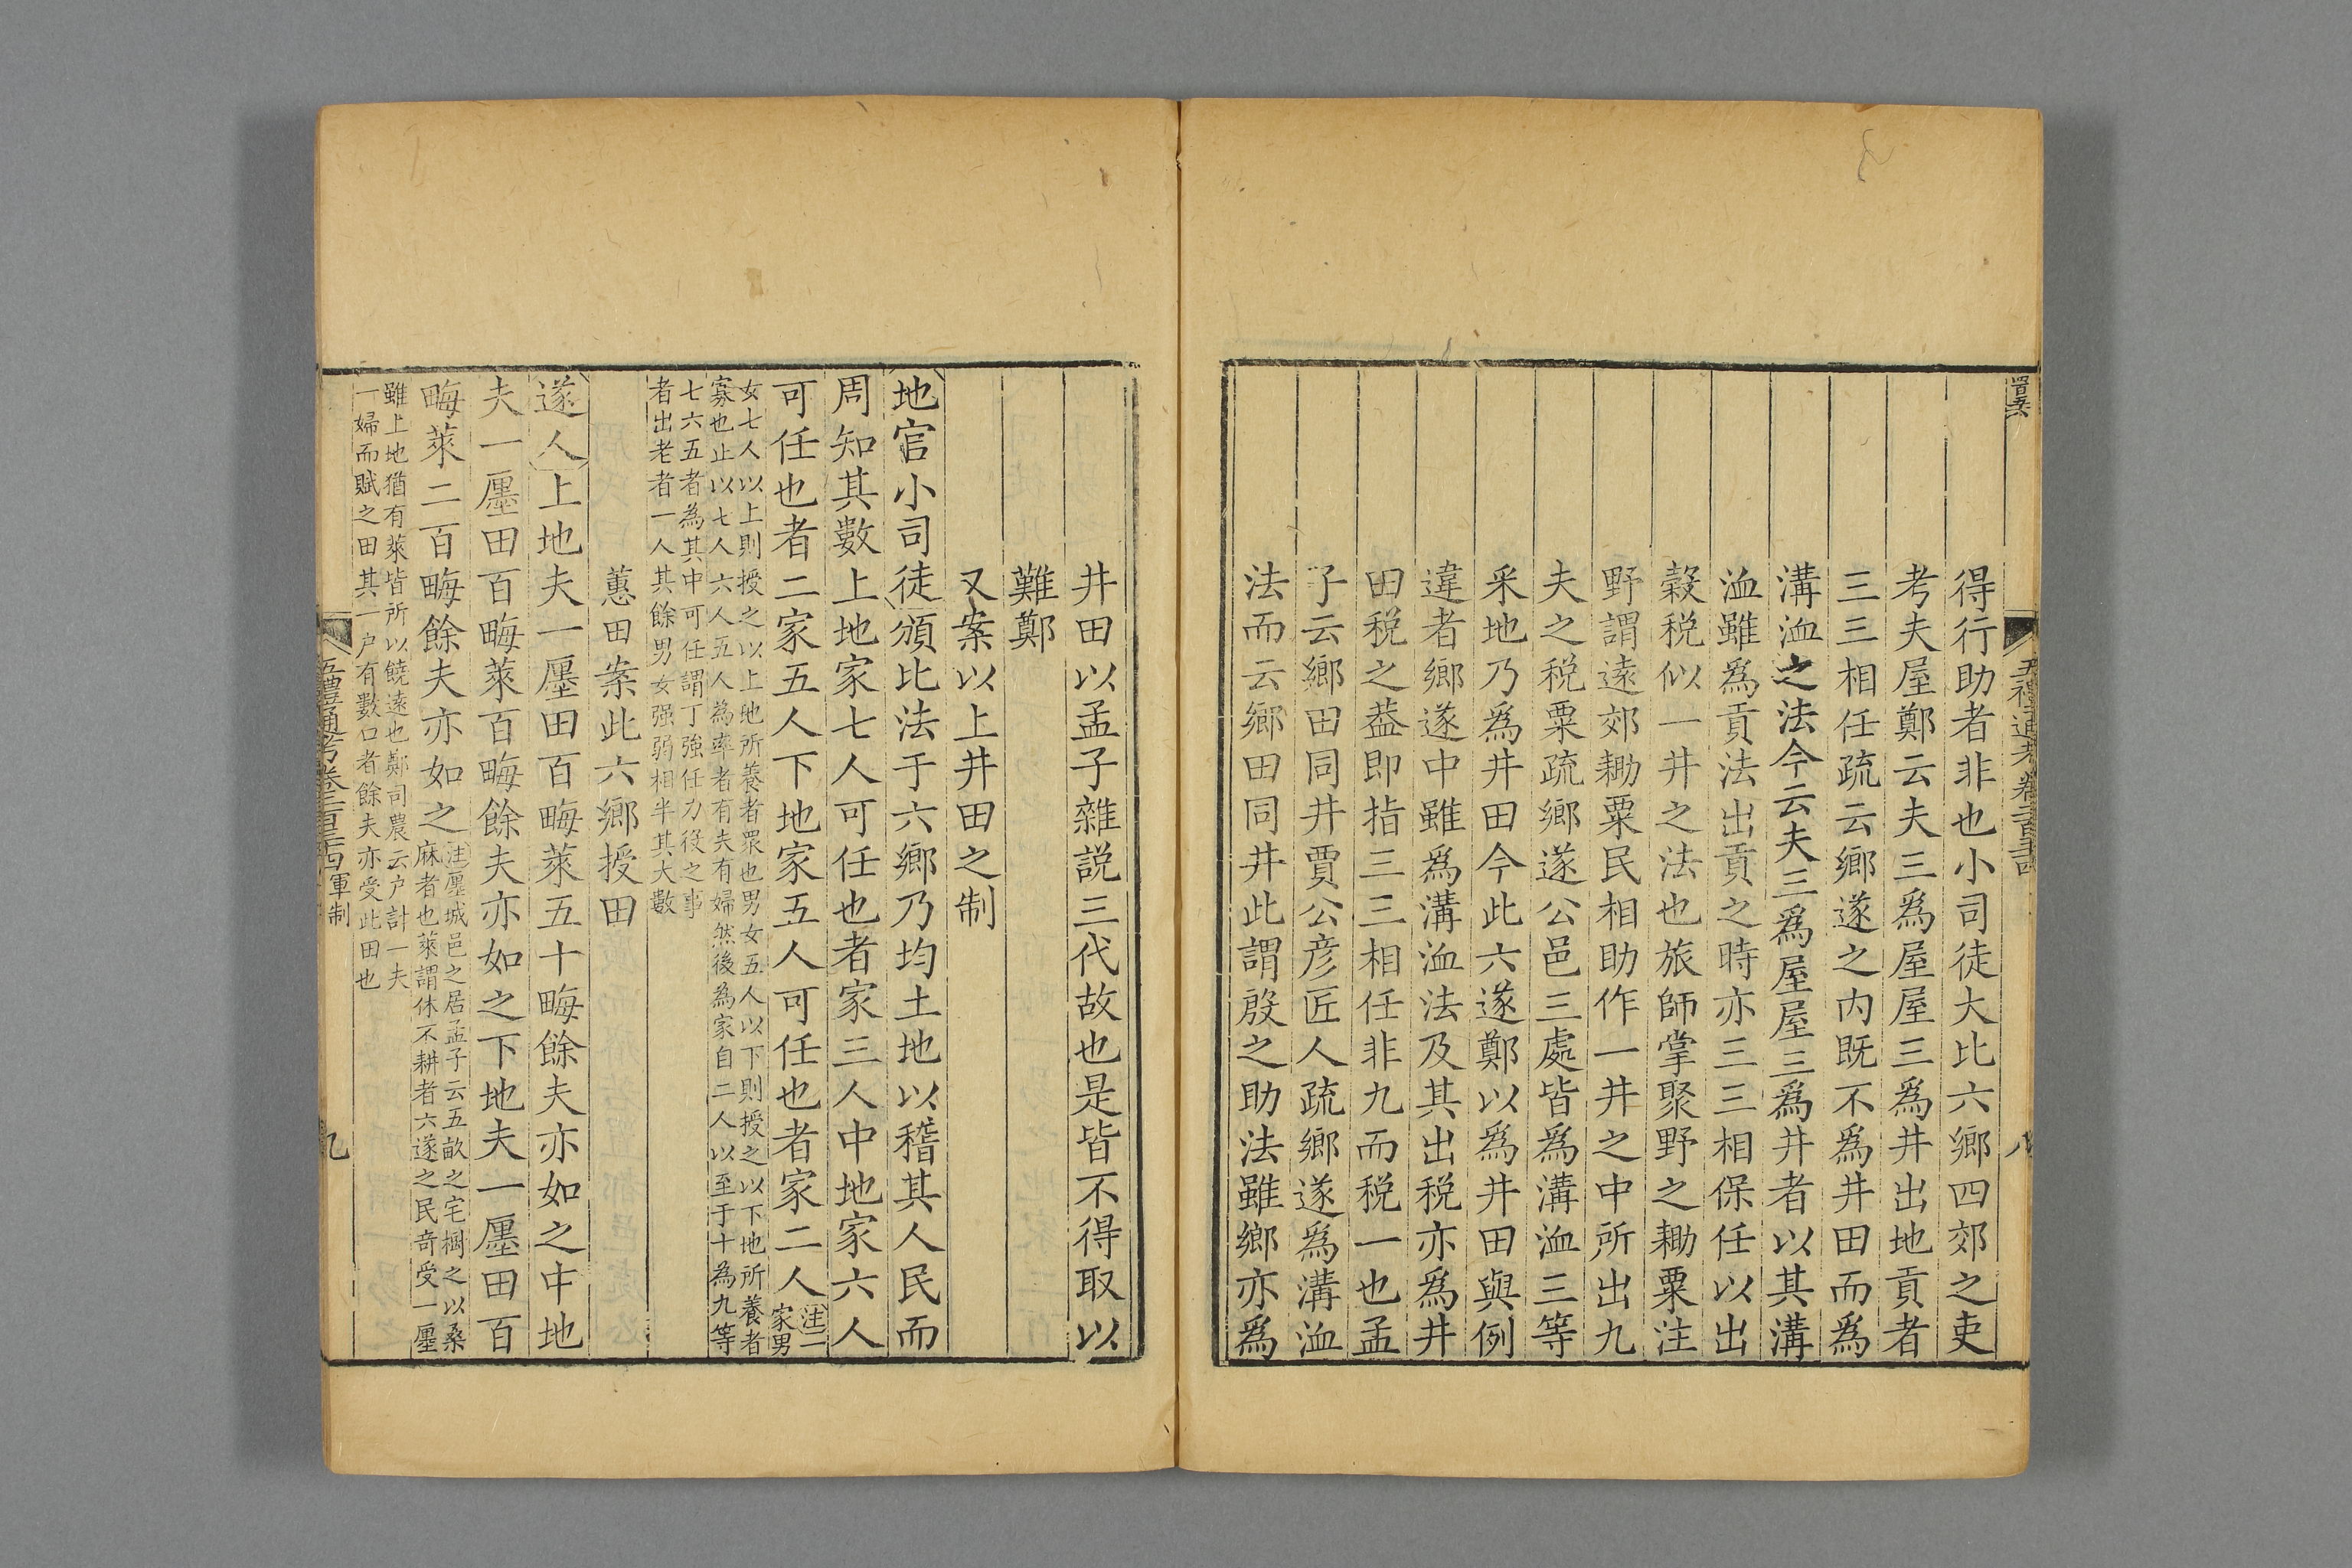 得行助者非也小司徒大比六鄉四郊之吏
考夫屋鄭云夫三爲屋屋三爲井出地貢者
三三相任疏云鄉遂之内既不爲井田而爲
溝洫之法今云夫三爲屋屋三爲井者以其溝
洫雖爲貢法出貢之時亦三三相保任以出
穀税似一井之法也旅師掌聚野之耡粟注
野謂遠郊耡粟民相助作一井之中所出九
夫之税粟疏鄉遂公邑三處皆爲溝洫三等
釆地乃爲井田今此六遂鄭以爲井田與例
違者鄉遂中雖爲溝洫法及其出税亦爲井
田税之葢即指三三相任非九而税一也孟
子云鄉田同井賈公彦匠人疏鄉遂爲溝洫
法而云鄉田同井此謂殷之助法雖鄉亦爲
井田以孟子雜説三代故也是皆不得取以
難鄭
又案以上井田之制
地官小司徒頒比法于六鄉乃均土地以稽其人民而
周知其數上地家七人可任也者家三人中地家六人
可任也者二家五人下地家五人可任也者家二人注一
家男
女七人以上則授之以上地所養者眾也男女五人以下則授之以下地所養者
寡也止以七人六人五人為率者有夫有婦然後為家自二人以至于十為九等
七六五者為其中可任謂丁強任力役之事
者出老者一人其餘男女强弱相半其大數
蕙田案此六鄉授田
遂人上地夫一廛田百畮萊五十畮餘夫亦如之中地
夫一廛田百畮萊百畮餘夫亦如之下地夫一廛田百
畮萊二百畮餘夫亦如之注廛城邑之居孟子云五畝之宅樹之以桑
麻者也萊謂休不耕者六遂之民奇受一廛
雖上地猶有萊皆所以饒遠也鄭司農云户計一夫
一婦而賦之田其一户有數口者餘夫亦受此田也
五禮通考卷二百三十四軍制
九